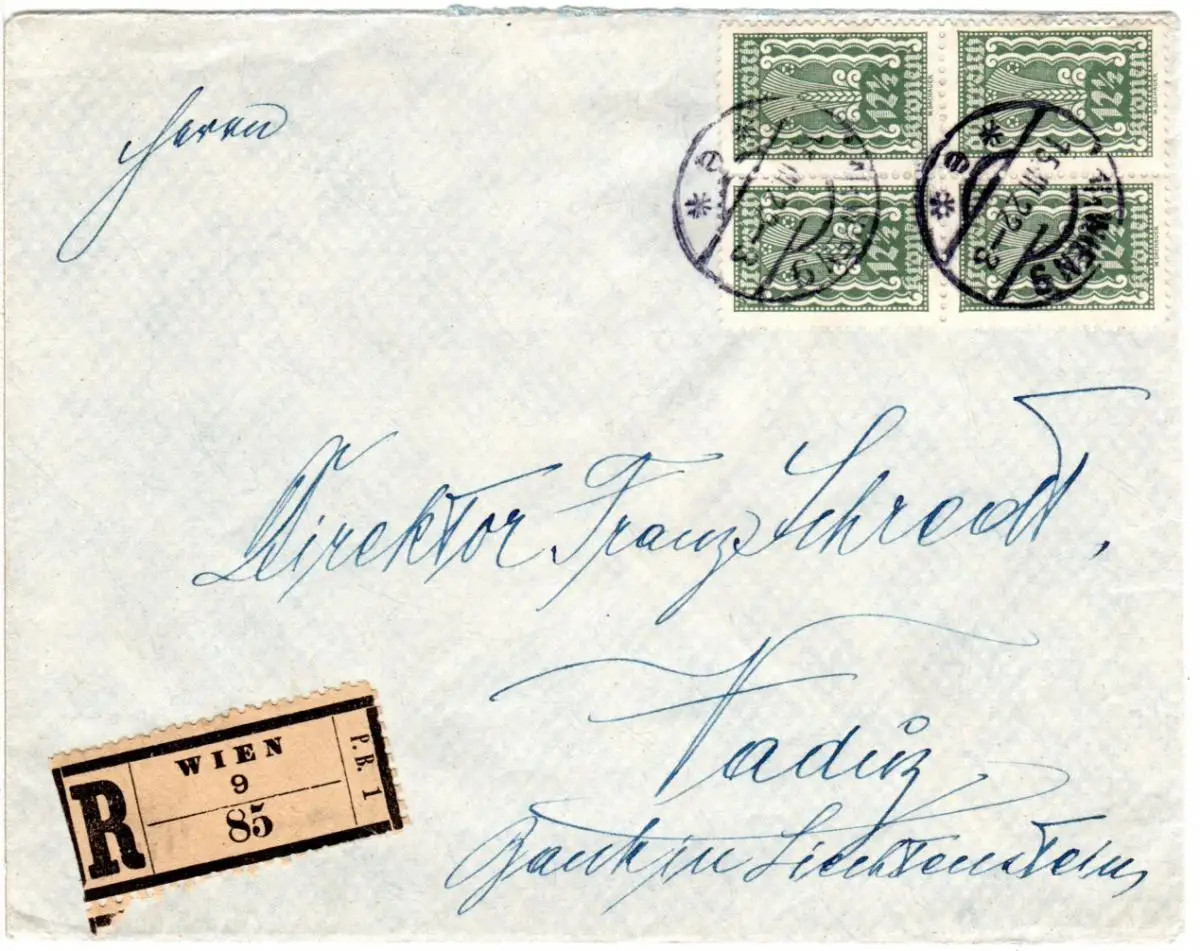 Herrn
12½ 12½
Kronen Kronen
12½ 12½
Kronen Kronen
WIEN 9
15.III.22-3
* e *
Direktor Franz Schredt,
Vaduz
Bank in Liechtenstein,
R
WIEN
9
85
P. B. 1